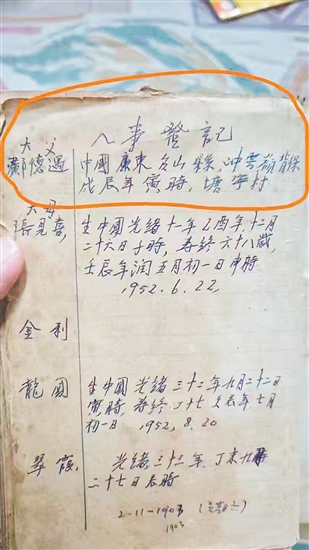 人事登記
大父
鄺德遇
中國廣東台山縣,冲雲
戊辰年寅時,塘寧村
大母
張見喜,
生中國光緒十一年乙酉年十二月
二十六日子時,壽终六十八歲,
壬辰年润五月初一日申時
1952.6.22,
金利
龍圓
生中國光緒三十二年九月二十二日
寅時 壽终
初一日 1952,8.20
翠霞,
光緒三十三年丁未九
二十七日辰時
2-11-1903
1903